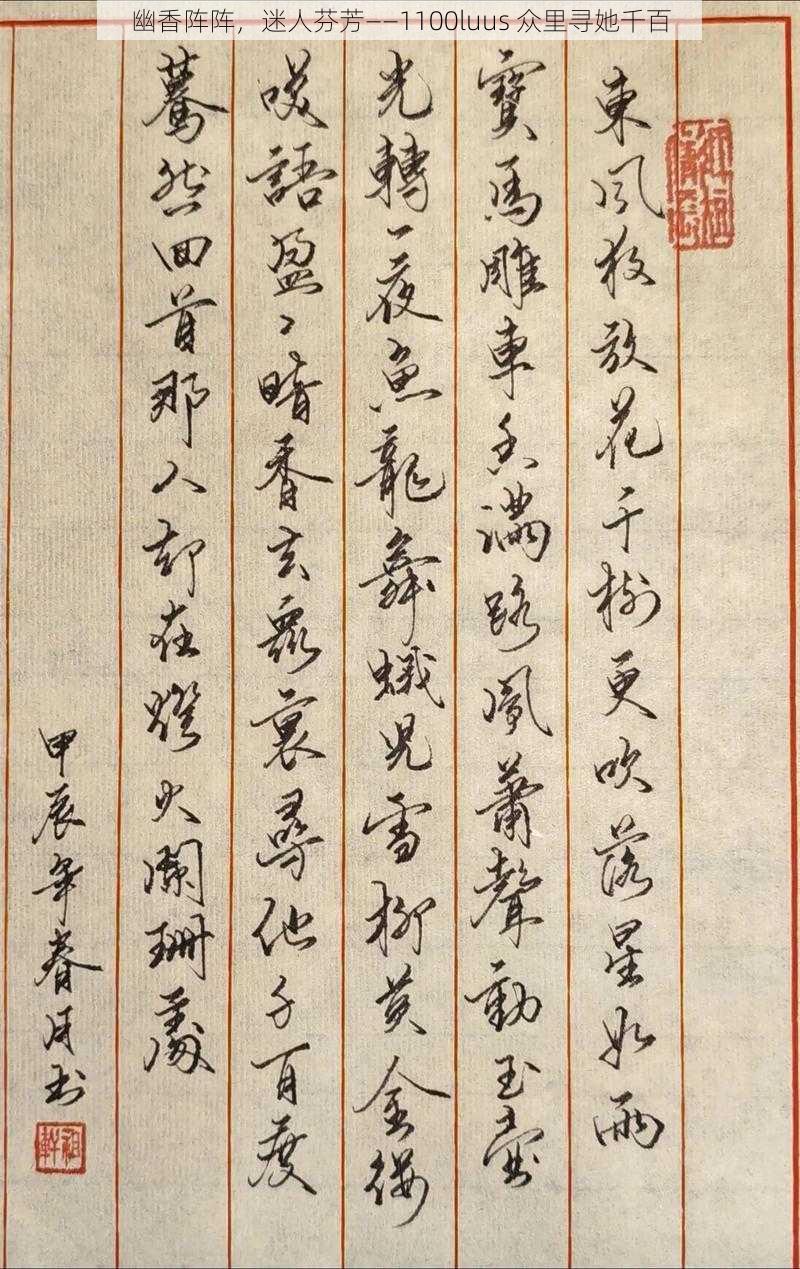 幽香阵阵，迷人芬芳——1100luus 众里寻她千百
東風夜放花千樹更吹落星如雨
寶馬雕車香滿路鳳蕭聲動玉壺
光轉一夜魚龍舞蛾兒雪柳黃金縷
咲語盈〻暗香去衆裏尋他千百度
驀然回首那人却在燈火闌珊處
甲辰年春月書
祖軒